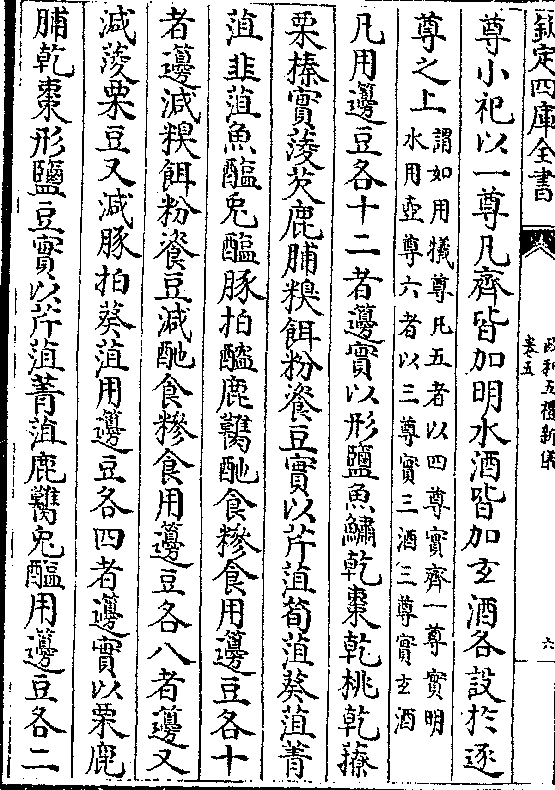 欽定四庫全書
政和五禮新儀
卷五
六
尊小祀以一尊凡齊皆加明水酒皆加玄酒各設於逐
尊之上
謂如用犧尊凡五者以四尊實齊一尊實明
水用壺尊六者以三尊實三酒三尊實玄酒
凡用籩豆各十二者籩實以形鹽魚鱐乾棗乾桃乾䕩
栗榛實蔆芡鹿脯糗餌粉餈豆實以芹菹筍菹葵菹菁
菹韭菹魚醢兎醢豚拍醓鹿臡酏食糝食用籩豆各十
者籩減糗餌粉餈豆減酏食糝食用籩豆各八者籩又
減蔆栗豆又減豚拍葵菹用籩豆各四者籩實以栗鹿
脯乾棗形鹽豆實以芹菹菁菹鹿臡兎醢用籩豆各二